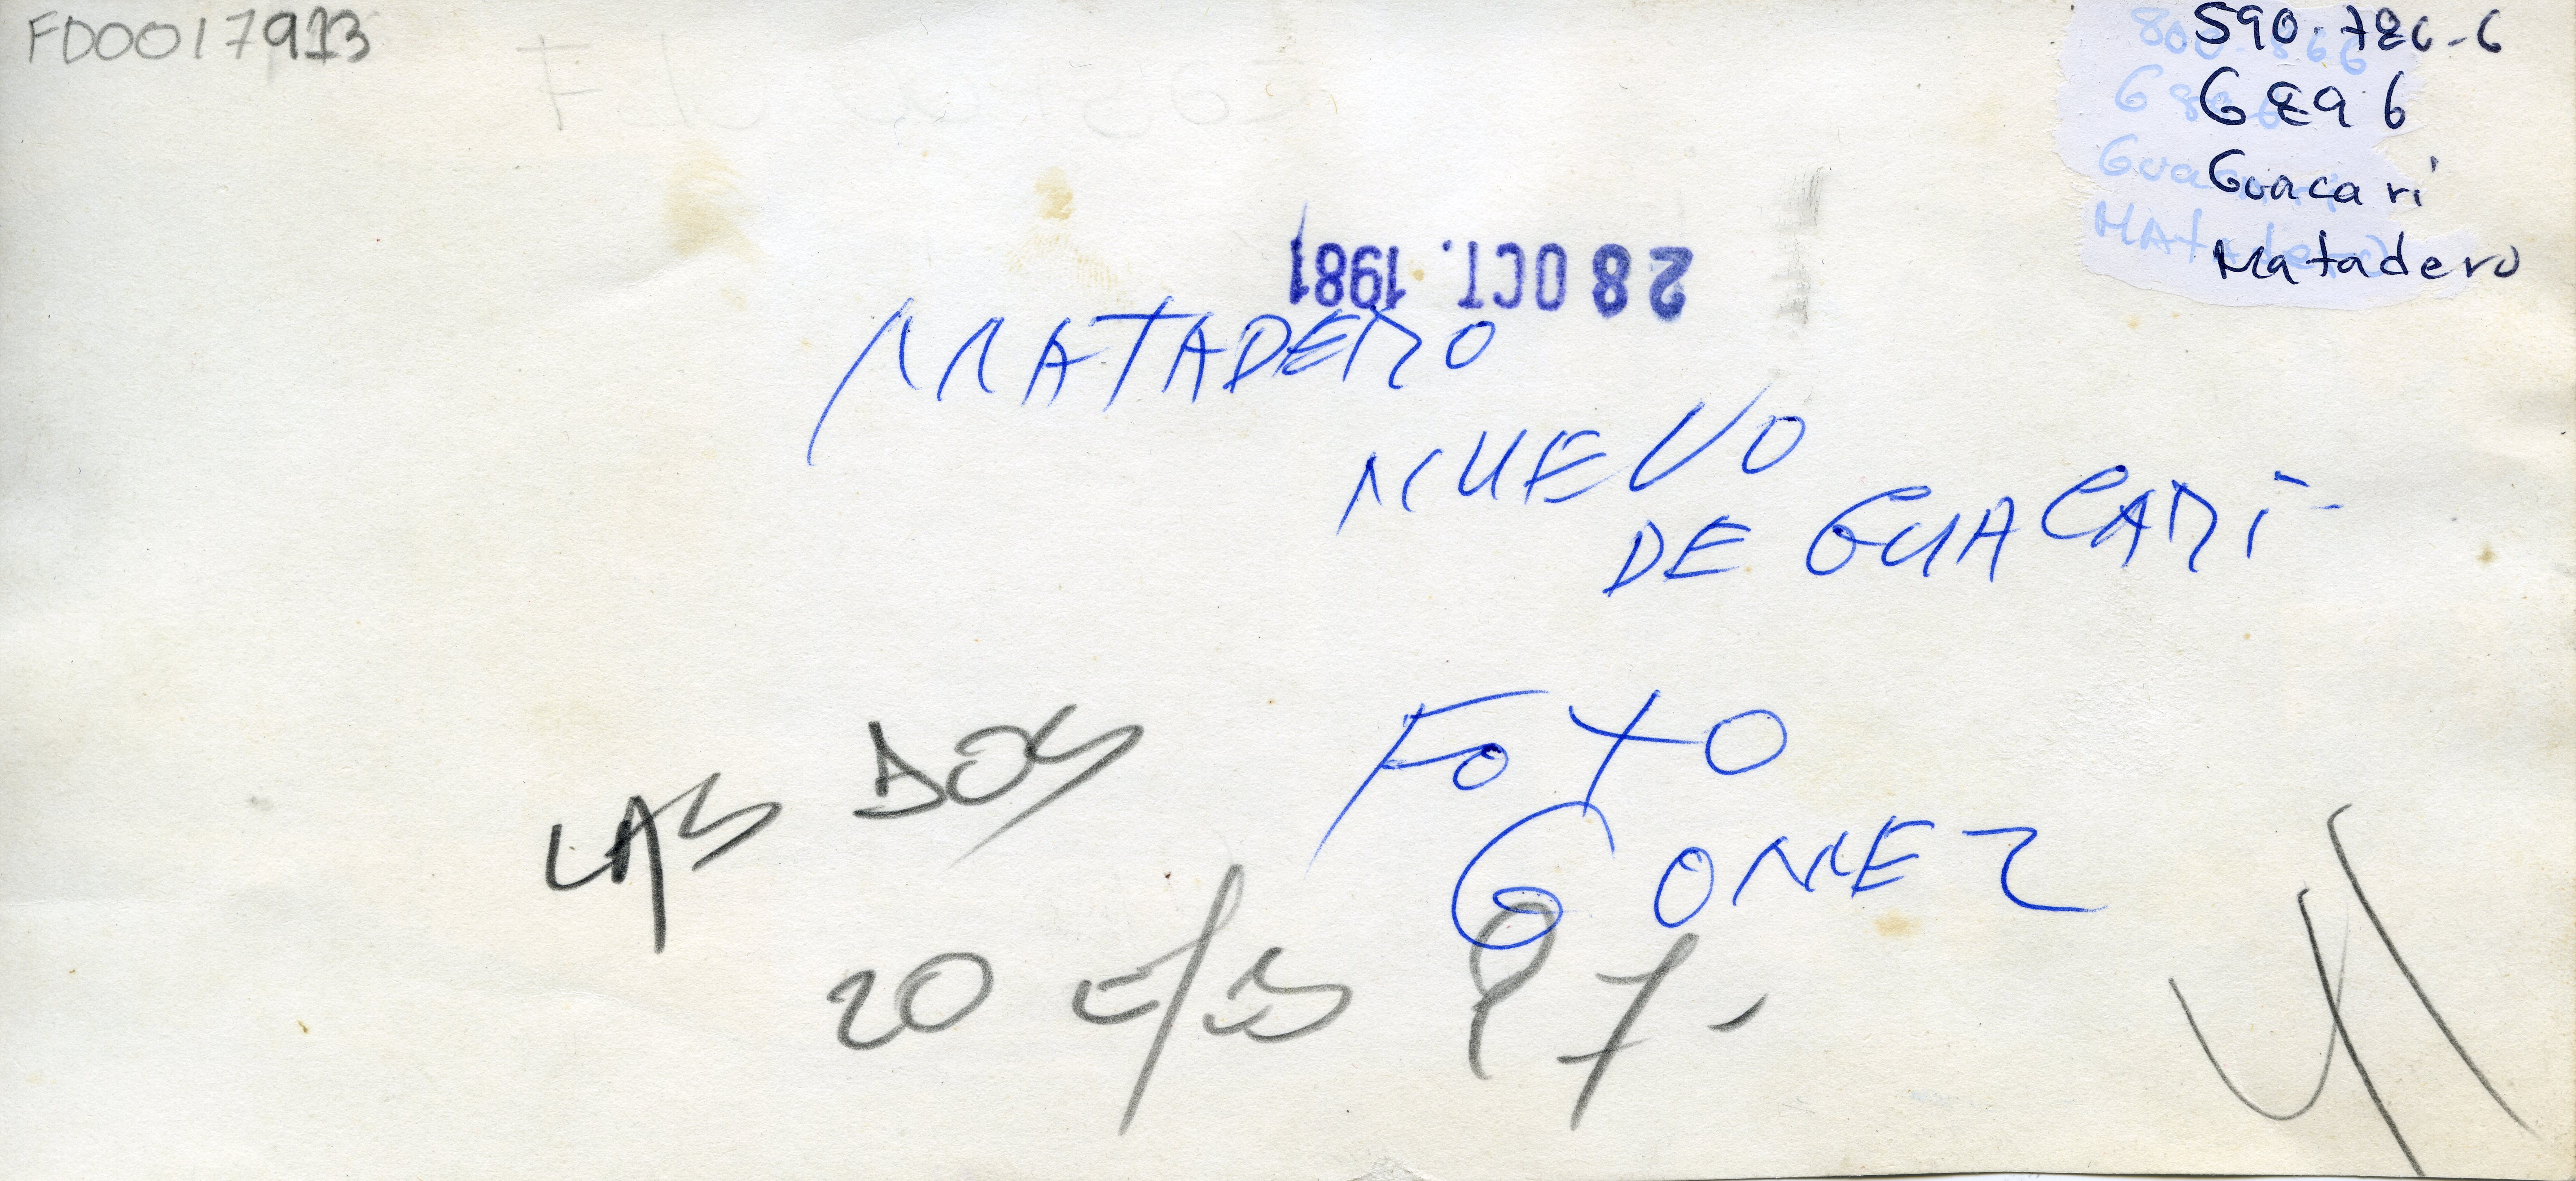 FD0017913
590.786-6
G896
Guacarí
Matadero
28 OCT. 1981
MATADERO
NUEVO
DE GUACARÍ-
FOTO
GOMEZ
LAS DOS
20 c/s 97.